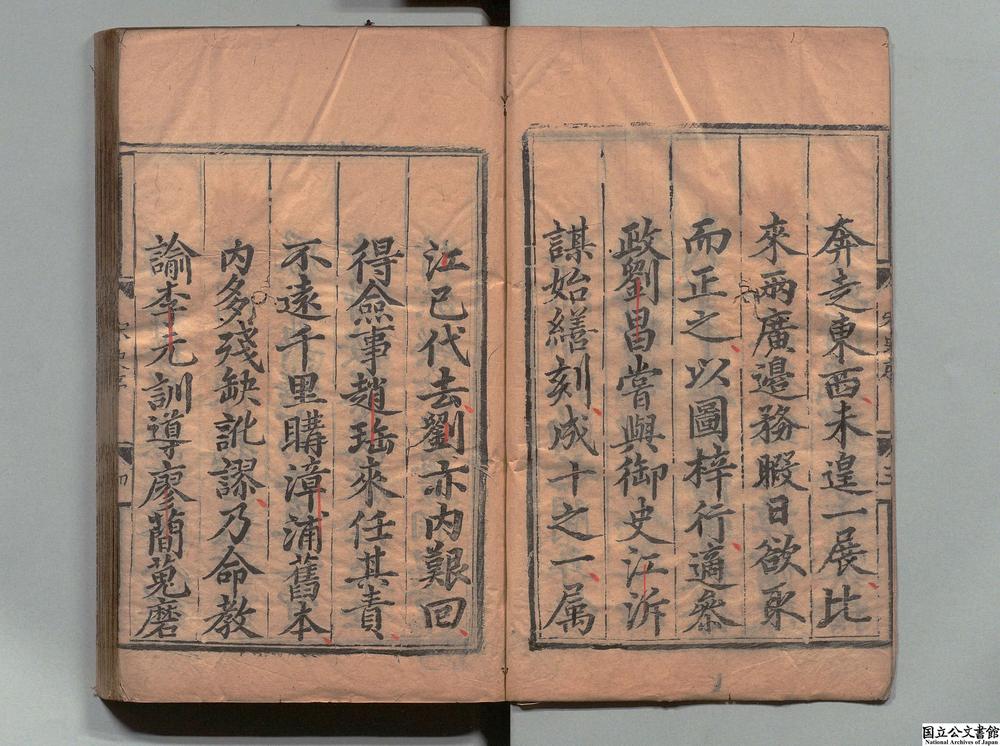 奔走東西未遑一展比
來兩廣邊務暇日欲取
而正之以圖梓行適叅
政劉昌嘗與御史江泝
謀始繕刻成十之一属
江已代去劉亦内艱回
得僉事趙珤來任其責
不遠千里購漳浦舊本
内多殘缺訛謬乃命教
諭李元訓導廖蕳蒐磨
国立公文書館
National Archives of Japan